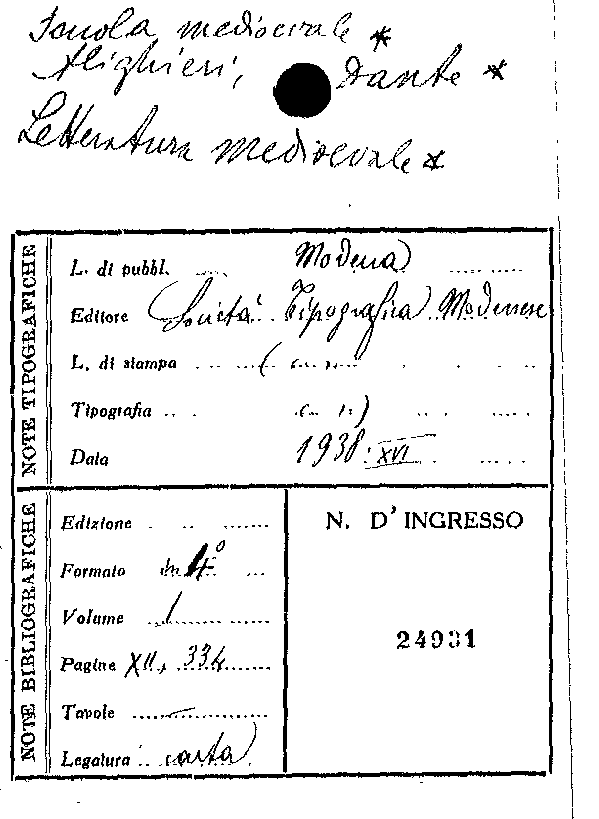 Scuola medioevale *
Alighieri, Dante *
Letteratura medioevale *
NOTE TIPOGRAFICHE
L. di pubbl. Modena
Editore Società Tipografica Modenese
L. di stampa (
Tipografia )
Data 1938 : XVI
NOTE BIBLIOGRAFICHE
Edizione
Formato in 4°
Volume 1
Pagine XII, 334
Tavole —
Legatura carta
N. D'INGRESSO
24931